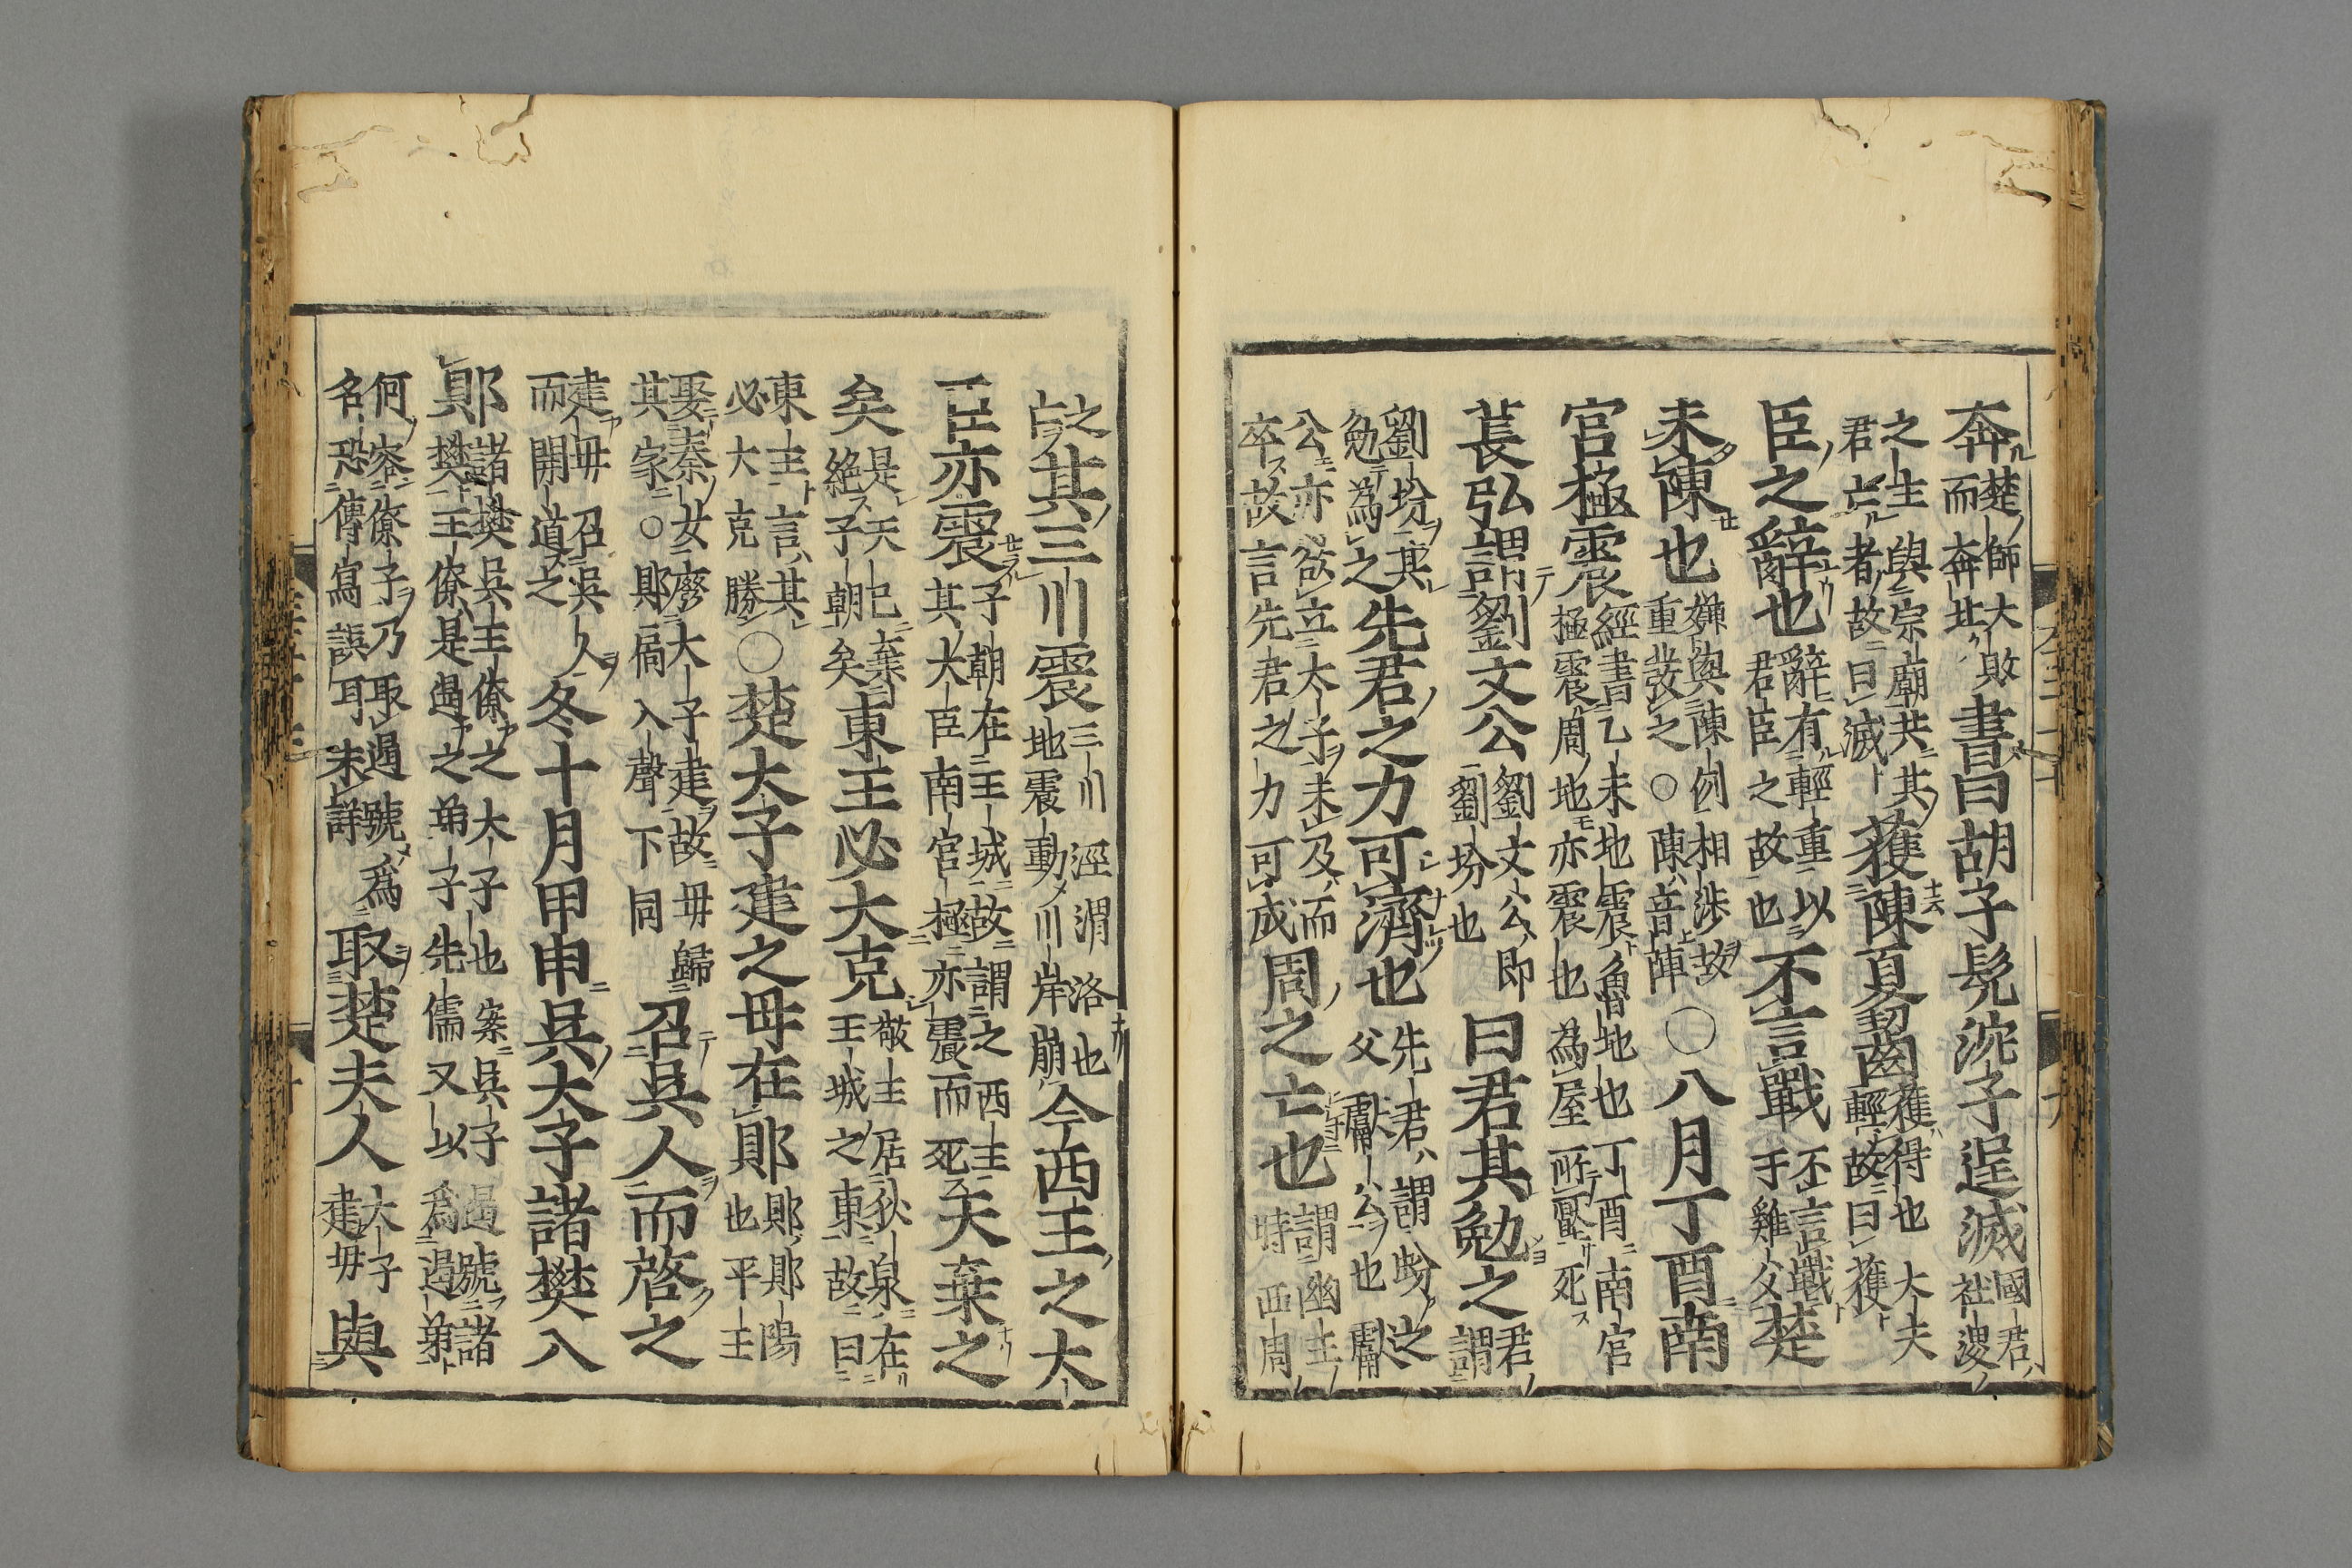 奔楚師大敗而奔北書曰胡子髡沈子逞滅國君社稷
之主與宗廟共其君亡者故曰滅獲陳夏齧獲得也大夫輕故曰獲
臣之辭也辭有輕重以君臣之故也不言戰不言戰于雞父楚
未陳也嫌與陳例相渉故重發之○陳音陣○八月丁酉南
宮極震經書乙未地震魯地也丁酉南宮極震周地亦震也為屋所壓死
萇弘謂劉文公劉文公即劉蚠也曰君其勉之君謂
劉蚠其勉為之先君之力可濟也先君謂蚠之父獻公也獻
公亦欲立大子未及而卒故言先君之力可成周之亡也謂幽王時西周
之亡其三川震三川涇渭洛也地震動川岸崩今西王之大
臣亦震子朝在王城故謂之西王其大臣南宮極亦震而死天棄之
矣是天已棄絶子朝矣東王必大克敬王居狄泉在王城之東故曰
東王言其必大克勝○楚大子建之母在郹郹郹陽也平王
娶秦女廢大子建故母歸其家○郹扃入聲下同召吳人而啓之
建母召吳人而開道之冬十月甲申吳大子諸樊入
郹諸樊吳王僚之大子也案吳子遏號諸樊王僚是遏之弟子先儒又以為遏弟
何容僚子乃取遏號爲名恐傳寫誤耳未詳取楚夫人大子建母與